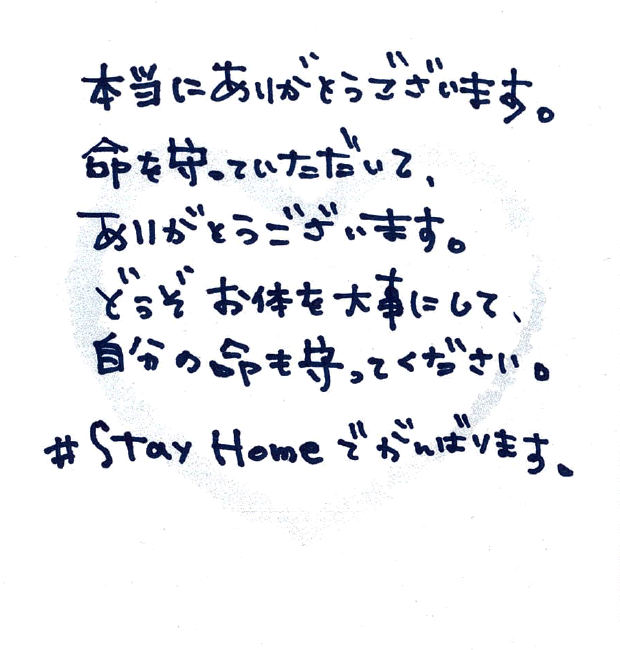 本当にありがとうございます。
命を守っていただいて、
ありがとうございます。
どうぞ お体を大事にして、
自分の命も守ってください。
#Stay Home でがんばります。